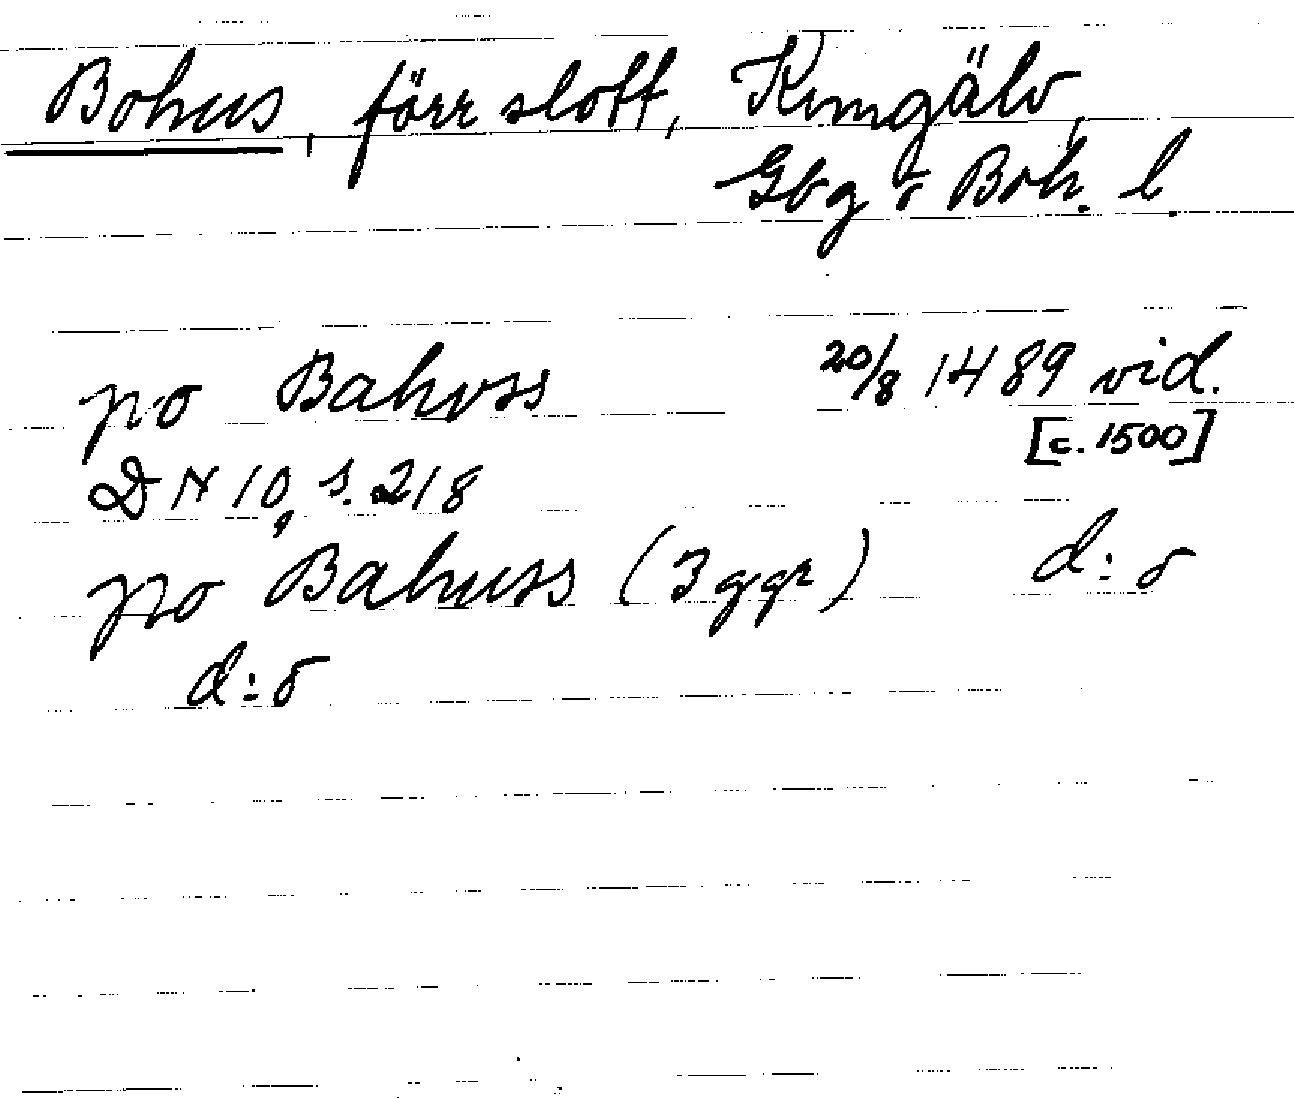 Bohus, förr slott, Kungälv,
Gbg o Boh. l
po Bahvss 20/8 1489 vid.
[c. 1500]
DN 10, s. 218
po Bahuss (3 ggr) d:o
d:o